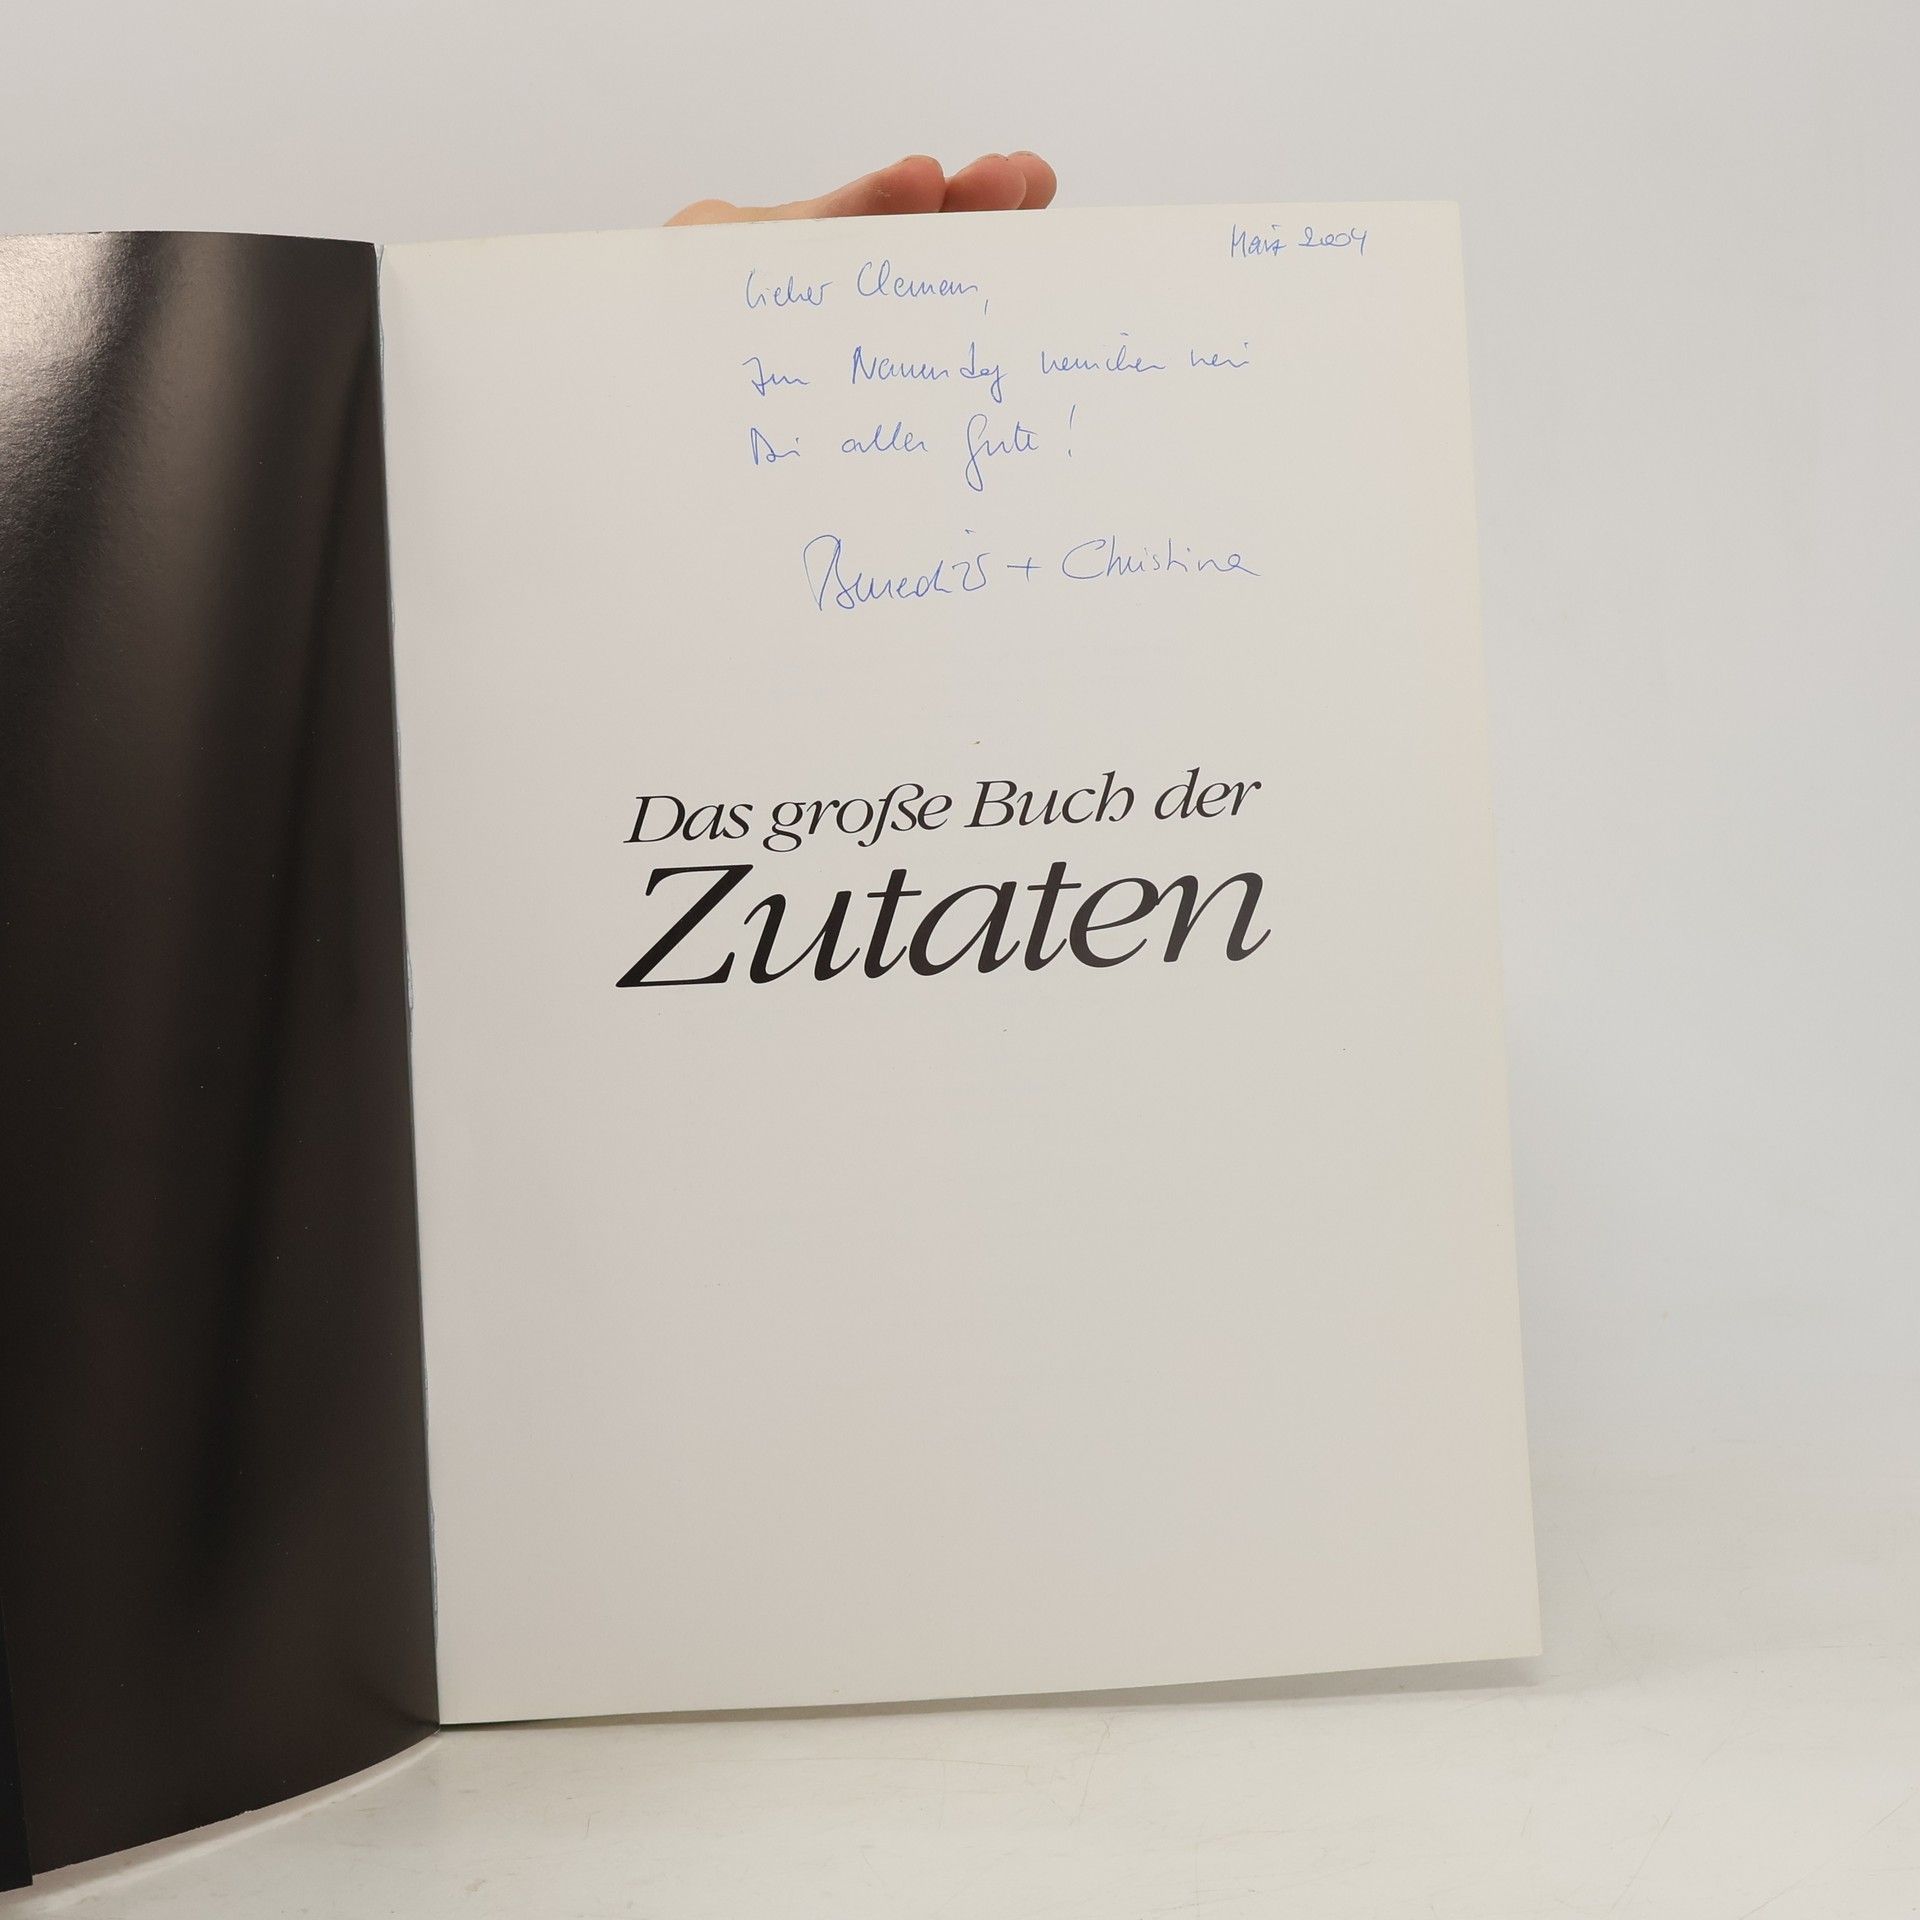 März 2004
Lieber Clemens,
Zum Namenstag wünschen wir
Dir alles Gute!
Benedikt + Christina
Das große Buch der
Zutaten